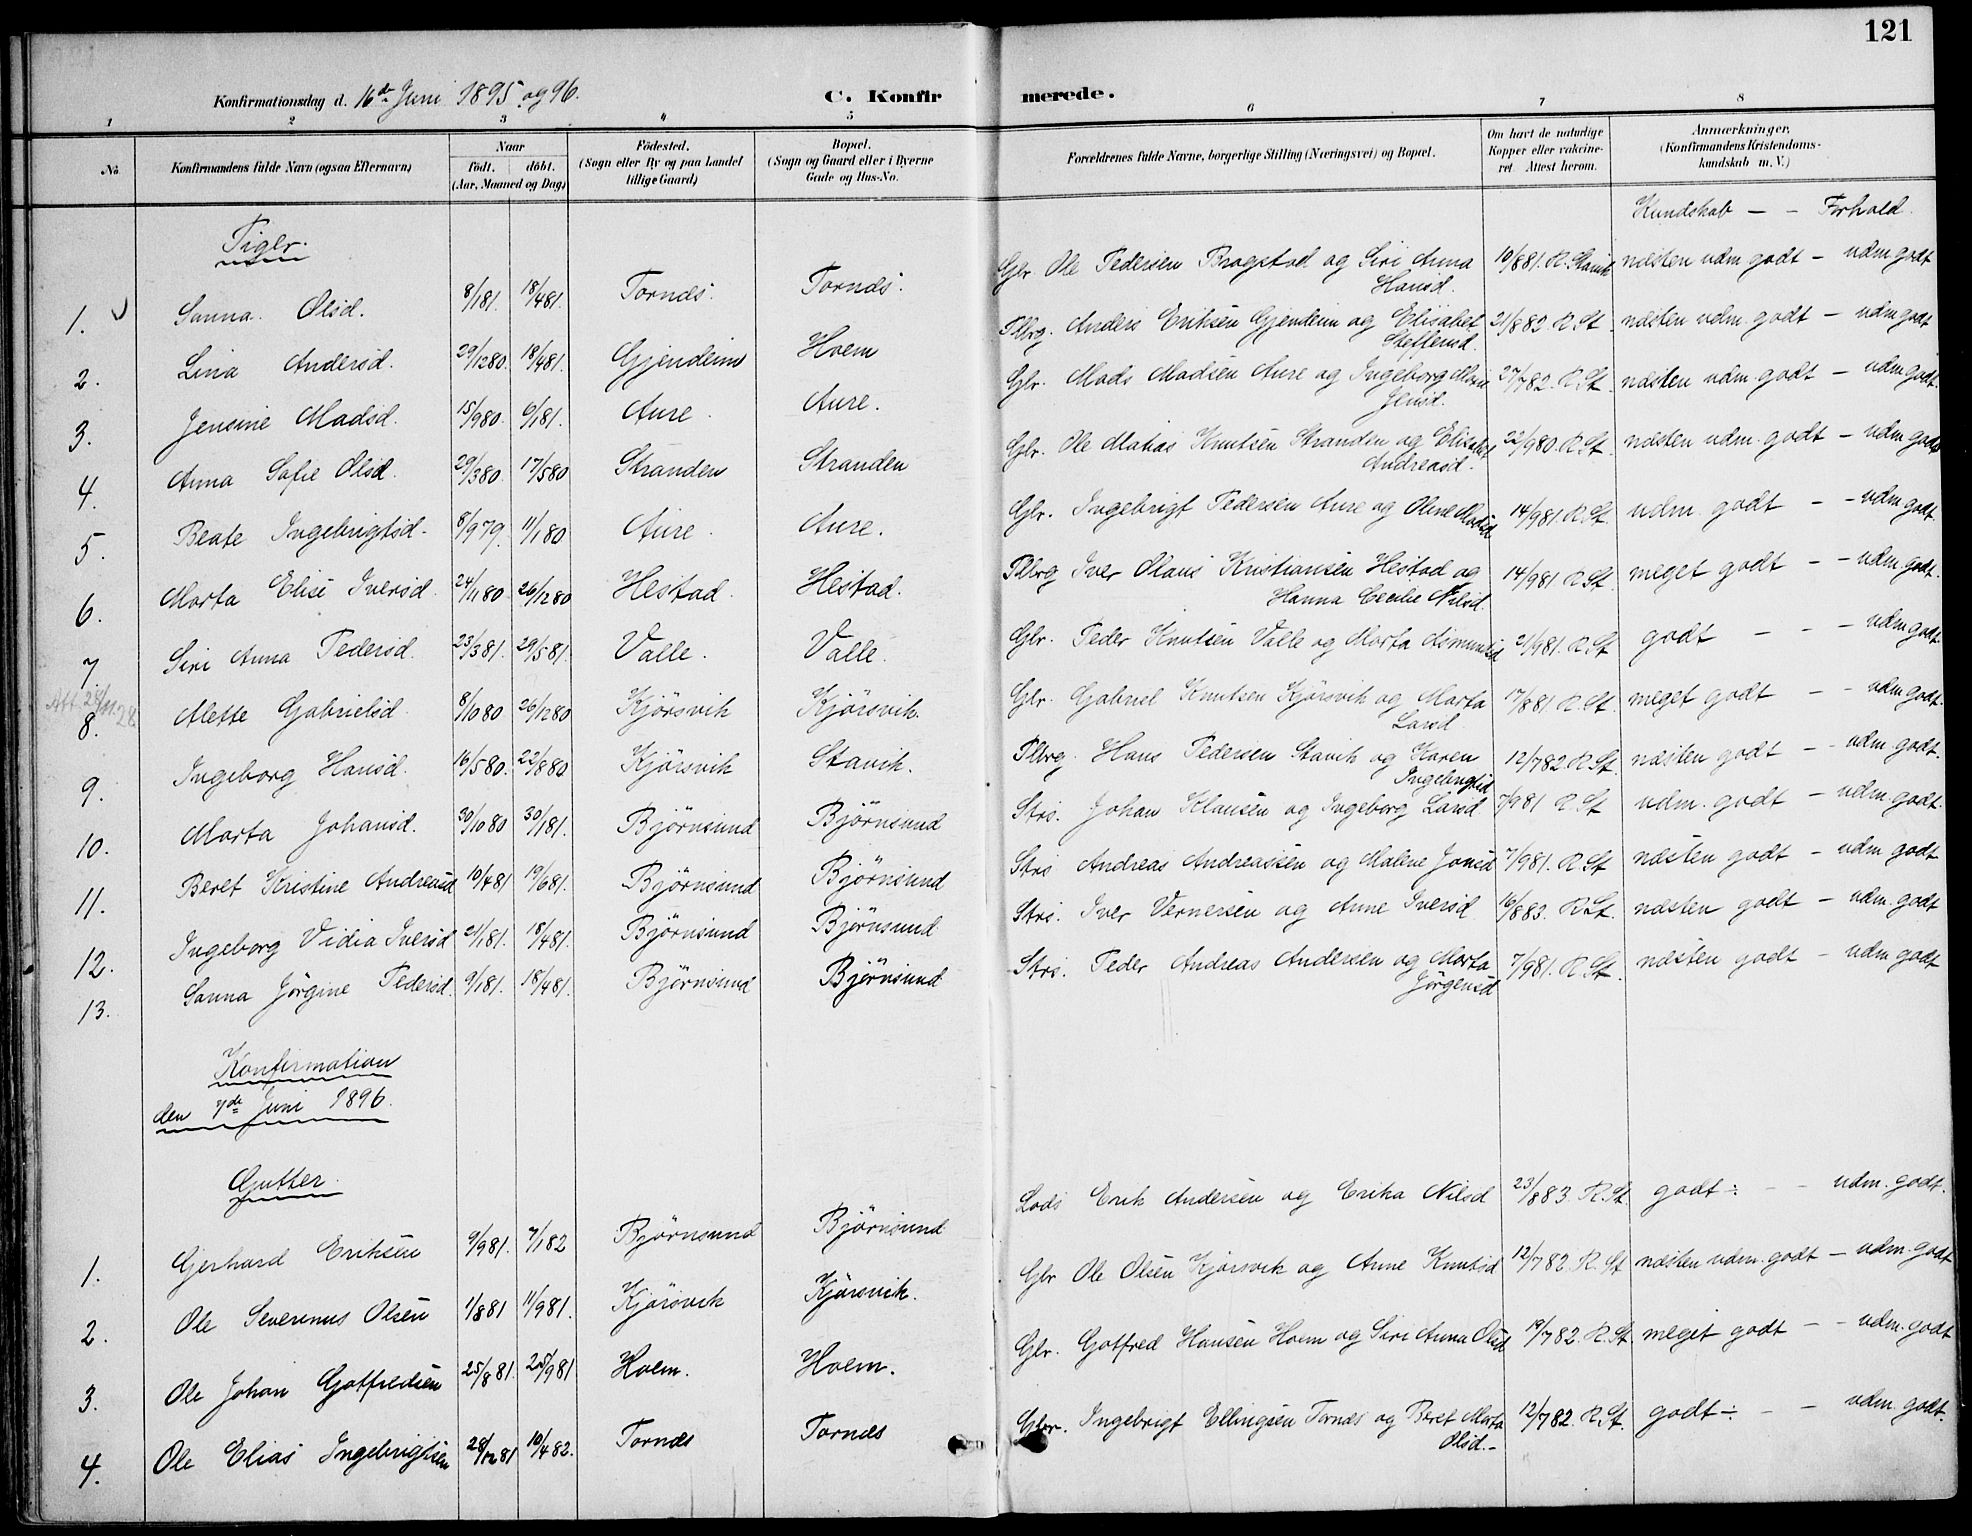 121
Konfirmationsdag d. 16de Juni 1895 og 96. C. Konfir merede.
1 2 3 4 5 6 7 8
No Konfirmandens fulde Navn (ogsaa Efternavn) Naar født. døbt. (Aar, Maaned og Dag) Fødested. (Sogn eller By og paa Landet tillige Gaard) Bopæl. (Sogn og Gaard eller i Byerne Gade og Hus-No. Forældrenes fulde Navne, borgerlige Stilling (Næringsvei) og Bopæl. Om havt de naturlige Kopper eller vakcineret. Attest herom. Anmærkninger. (Konfirmandens Kristendomskundskab m. V.)
Kundskab — – Forhold.
Piger.
1. Sanna Olsd. 8/1 81. 18/4 81. Tornæs. Tornæs. Gbr. Ole Pedersen Brogstad og Siri Anna Hansd. 10/8 81. R. Stavik næsten udm godt – udm godt
2. Lina Andersd. 29/12 80. 18/4 81. Gjendeim Hoem Plbrg. Anders Eriksen Gjendeim og Elisabet Steffensd. 21/8 82 R. St. næsten udm. godt – udm godt
3. Jensine Madsd. 15/9 80. 6/1 81. Aure. Aure. Gbr. Mads Madsen Aure og Ingeborg Marie Jensd. 27/7 82. R. St. næsten udm godt – udm godt.
4. Anna Sofie Olsd. 29/3 80. 17/5 80 Stranden Stranden Gbr. Ole Matias Knutsen Stranden og Elisabet Andreasd. 22/9 80. R. St. næsten udm. godt – udm godt
5. Beate Ingebrigtsd. 8/9 79. 11/1 80 Aure. Aure. Gbr. Ingebrigt Pedersen Aure og Oline Madsd 14/9 81. R. St. udm. godt – – udm godt.
6. Marta Elise Iversd. 24/11 80 26/12 80 Hestad. Hestad. Plbrg Iver Olaus Kristiansen Hestad og Hanna Cecilie Nilsd. 14/9 81 R. St. meget godt – – udm. godt.
7. Siri Anna Pedersd. 23/3 81. 29/5 81. Valle. Valle. Gbr. Peder Knutsen Valle og Marta Asmundsd 21/9 81. R. St. godt – – – udm godt
Att. 28/11 28
8. Mette Gabrielsd. 8/10 80 26/12 80 Kjørsvik Kjørsvik. Gbr. Gabriel Knutsen Kjørsvik og Marta Larsd 17/8 81 R. St. meget godt – – udm godt.
9. Ingeborg Hansd. 16/5 80. 22/8 80 Kjørsvik Stavik. Plbrg. Hans Pedersen Stavik og Karen Ingebrigtsd 12/7 82. R. St. næsten godt – – udm. godt.
10. Marta Johansd. 30/10 80 30/1 81. Bjørnsund Bjørnsund Strs. Johan Klausen og Ingeborg Larsd 7/9 81 R. St udm. godt – udm. godt.
11. Beret Kristine Andreasd 10/4 81 19/6 81. Bjørnsund Bjørnsund Strs Andreas Andreassen og Malene Jonsd 7/9 81. R. St næsten godt – udm. godt
12. Ingeborg Vidia Iversd 21/1 81. 18/4 81. Bjørnsund Bjørnsund Strs. Iver Vernersen og Anne Iversd 16/8 83. R. St. næsten godt – udm. godt
13. Sanna Jørgine Pedersd. 9/1 81. 18/4 81. Bjørnsund Bjørnsund Strs. Peder Andreas Andersen og Marta Jørgensd 7/9 81. R. St. næsten godt – udm godt
Konfirmation
den 7de Juni 1896.
Gutter.
1. Gerhard Eriksen 9/9 81. 7/1 82 Bjørnsund Bjørnsund Lods Erik Andersen og Erika Nilsd 23/8 83. R. St. godt ÷ – – udm. godt.
2. Ole Severinus Olsen 1/8 81 11/9 81. Kjørsvik Kjørsvik. Gbr Ole Olsen Kjørsvik og Anne Knutsd 12/7 82. R. St næsten udm. godt – udm. godt
3. Ole Johan Gotfredsen 25/8 81. 25/9 81 Hoem. Hoem. Gbr. Gotfred Hansen Hoem og Siri Anna Olsd 19/7 82. R. St. meget godt – – udm. godt
4. Ole Elias Ingebrigtsen 28/12 81 10/4 82. Tornæs Tornæs Gbr. Ingebrigt Ellingsen Tornæs og Beret Marta Olsd.- 12/7 82. R. St. godt ÷ – – udm. godt.